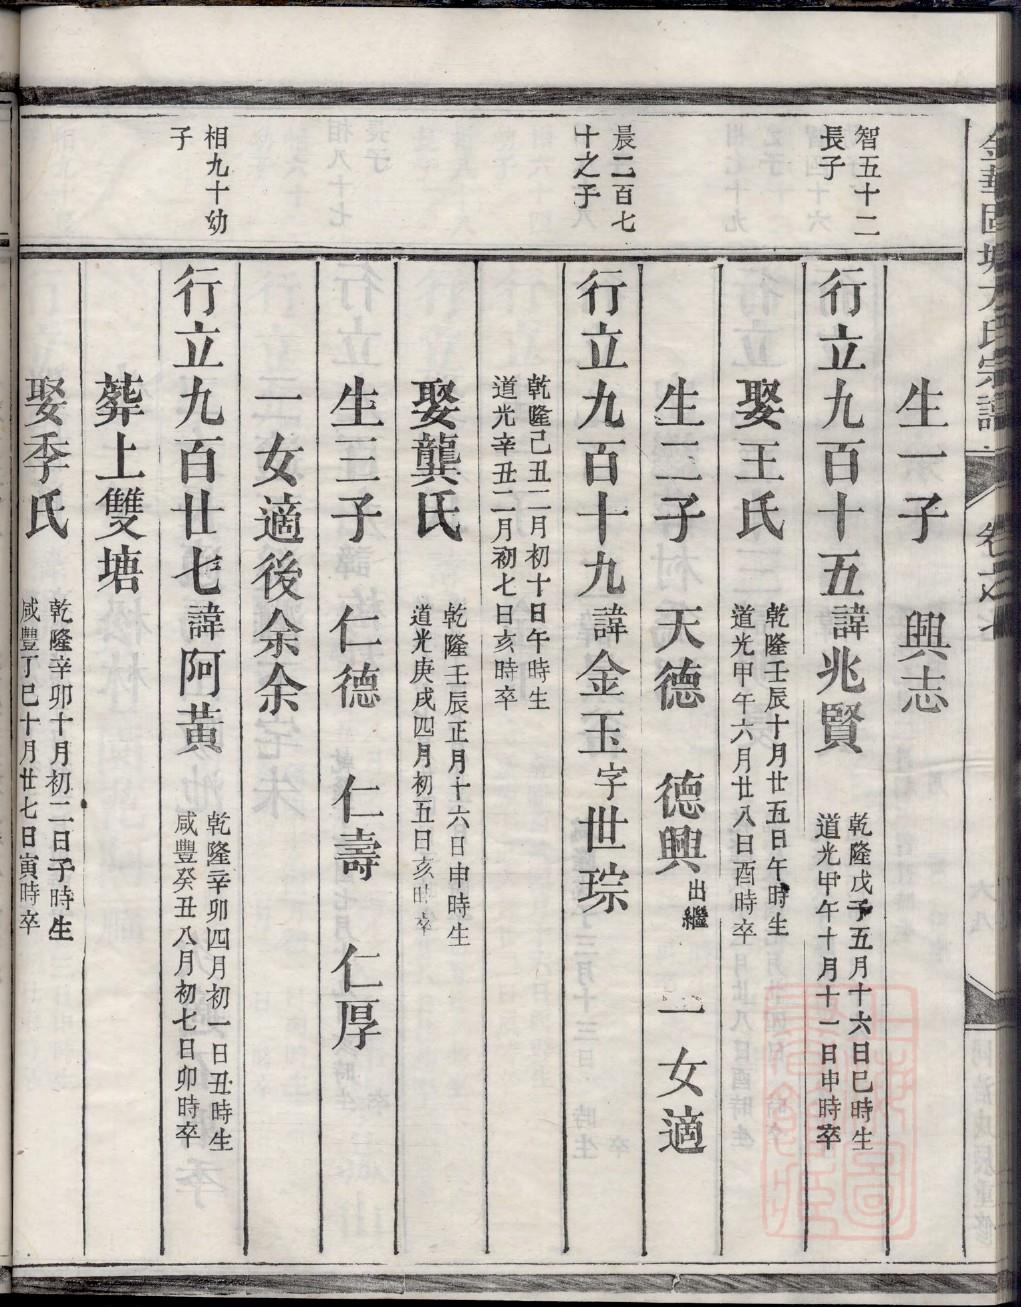 生一子 興志
智五十二
長子
行立九百十五諱兆賢
乾隆戊子五月十六日巳時生
道光甲午十月十一日申時卒
娶王氏
乾隆壬辰十月廿五日午時生
道光甲午六月廿八日酉時卒
生二子 天德 德興出繼 一女適
晨二百七
十之子
行立九百十九諱金玉字世琮
乾隆己丑二月初十日午時生
道光辛丑二月初七日亥時卒
娶龔氏
乾隆壬辰正月十六日申時生
道光庚戌四月初五日亥時卒
生三子 仁德 仁壽 仁厚
一女適後余余
相九十幼
子
行立九百廿七諱阿黃
乾隆辛卯四月初一日丑時生
咸豐癸丑八月初七日卯時卒
葬上雙塘
娶季氏
乾隆辛卯十月初二日子時生
咸豐丁巳十月廿七日寅時卒